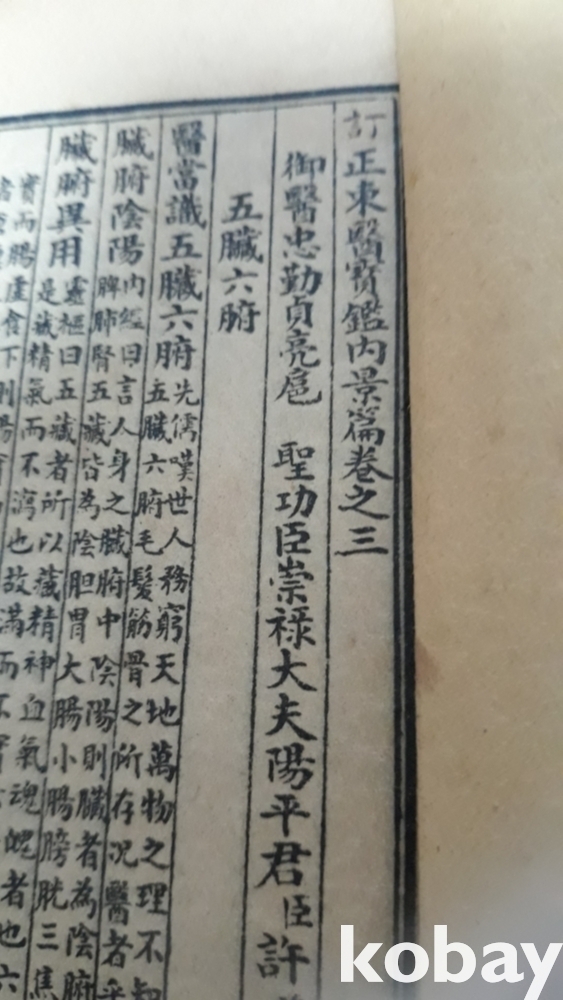 訂正東醫寶鑑內景篇卷之三
御醫忠勤貞亮扈 聖功臣崇祿大夫陽平君臣許
五臟六腑
醫當識五臟六腑 先儒嘆世人務窮天地萬物之理不知
五臟六腑毛髮筋骨之所存况醫者乎
臟腑陰陽 內經曰言人身之臟腑中陰陽則臟者為陰腑
脾肺腎五藏皆為陰胆胃大腸小腸膀胱三焦
臟腑異用 靈樞曰五藏者所以藏精神血氣魂魄者也六
是藏精氣而不瀉也故滿而不實
實而腸虛食下則腸
kobay